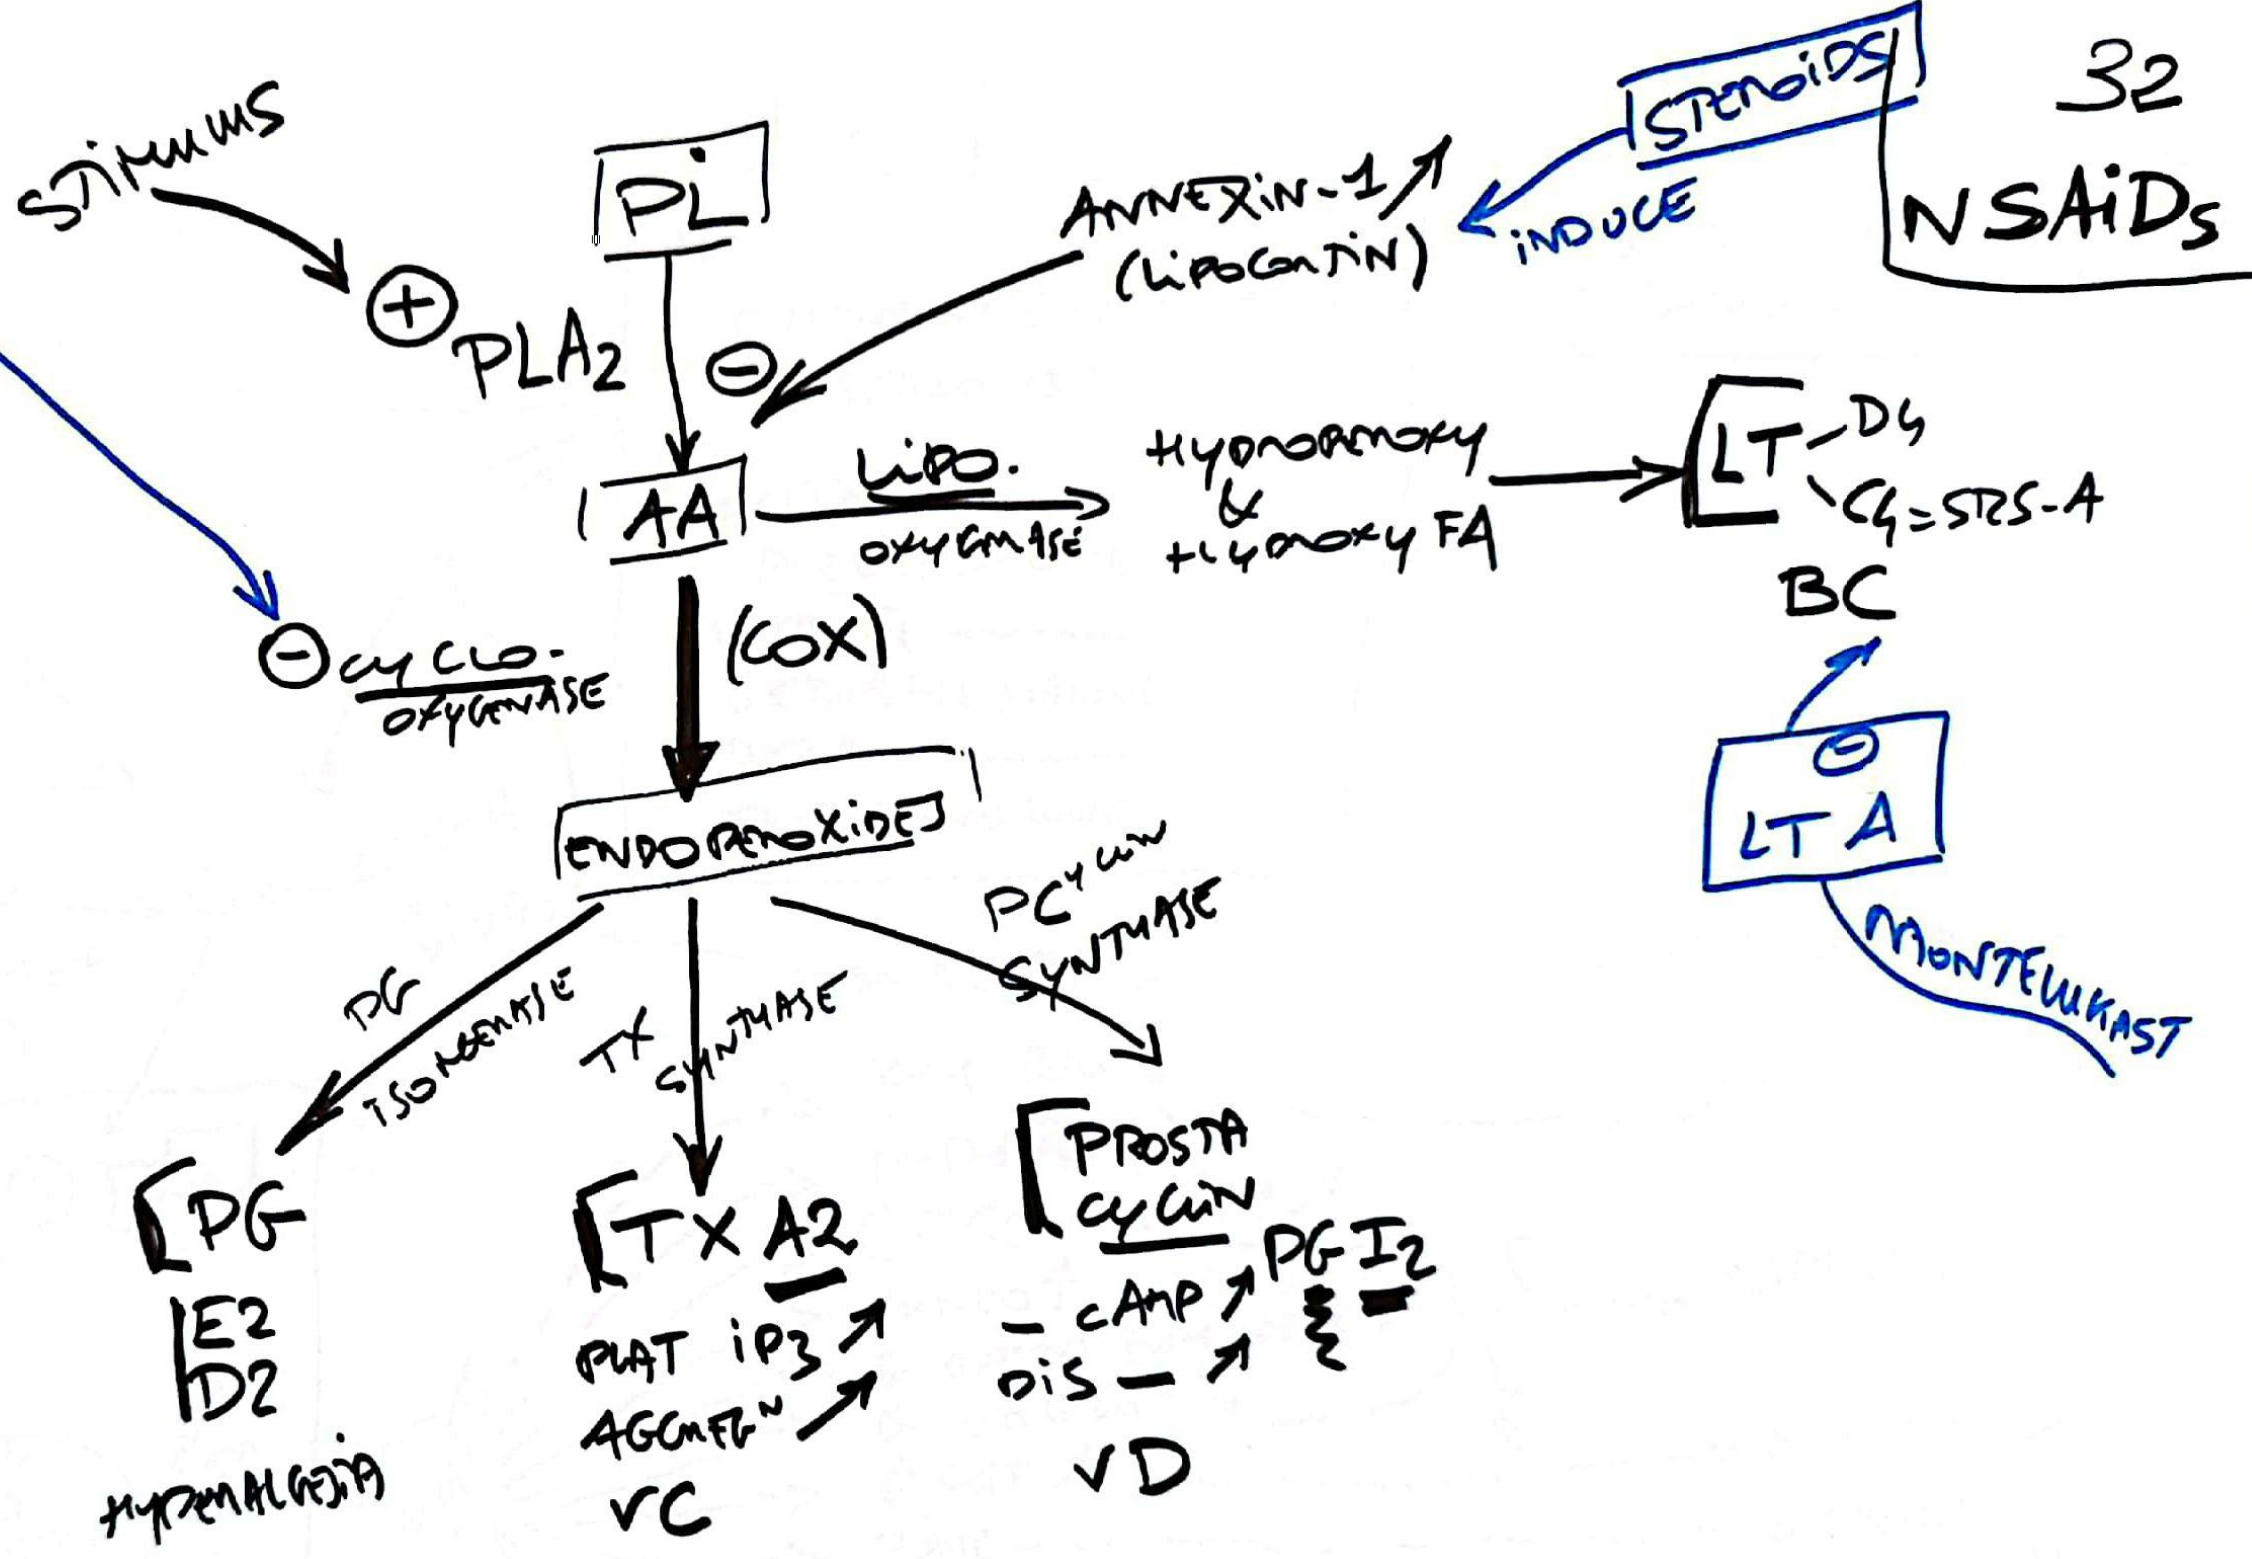 32
NSAiDs
STEROiDS
iNDUCE
STiMULUS
PL
ANNEXiN-1
(LiPOCORTiN)
+
PLA2
-
AA
LiPO.
OXYGENASE
HYDROPEROXY
&
HYDROXY FA
LT
D4
C4 = SRS-A
BC
-
LTA
MONTELUKAST
- CYCLO-
OXYGENASE
(COX)
ENDOPEROXIDES
PG
ISOMERASE
TX
SYNTHASE
PCYCLIN
SYNTHASE
PG
E2
D2
HYPERALGESiA
TX A2
PLAT iP3
AGGREGN
VC
PROSTA
CYCLiN
PG I2
- CAMP
DiS -
VD